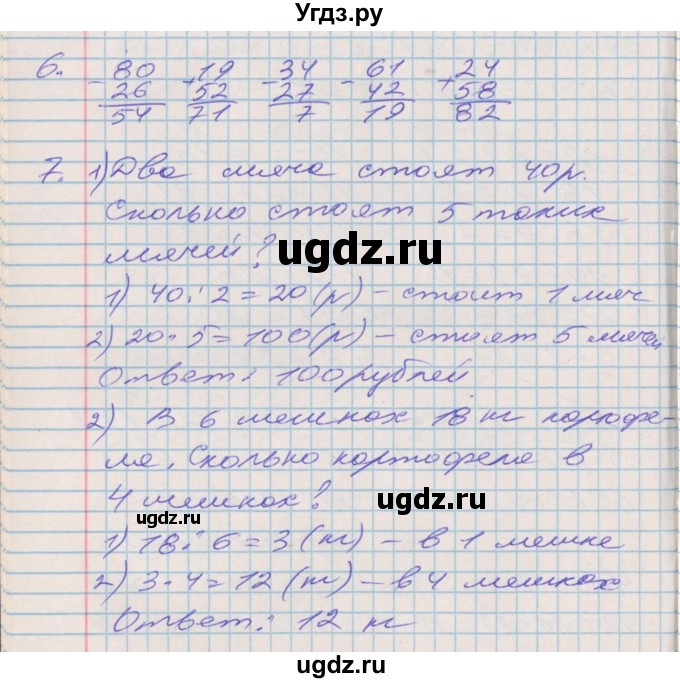 Угдз.ру
6. -80 +19 -34 -61 +24
26 52 27 42 58
54 71 7 19 82
7. 1) Два мяча стоят 40р.
Сколько стоят 5 таких
мячей?
ugdz.ru
1) 40:2=20(р) – стоит 1 мяч
2) 20·5=100(р) – стоят 5 мячей
Ответ: 100 рублей
2) В 6 мешках 18 кг картофе-
ля. Сколько картофеля в
4 мешках?
ugdz.ru
ugdz.ru
1) 18:6=3 (кг) – в 1 мешке
2) 3·4=12 (кг) – в 4 мешках
Ответ: 12 кг
ugdz.ru